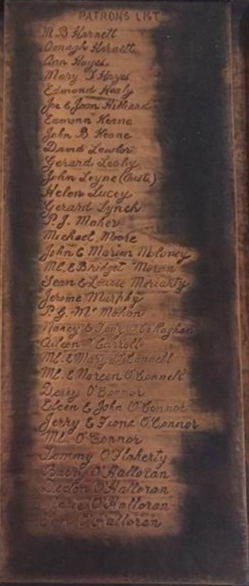 PATRONS LIST
M B Hartnett
Oonagh Hartnett
Ann Hayes
Mary T Hayes
Edmund Healy
Joe & Joan Hibbard
Eamonn Keane
John B Keane
David Lawlor
Gerard Leahy
John Leyne (Aust.)
Helen Lucey
Gerard Lynch
P.J. Maher
Michael Moore
John & Marian Moloney
Ml. & Bridget Moran
Sean & Louise Moriarty
Jerome Murphy
P.G. Mc Mahon
Nancy & O'Callaghan
Aileen O'Carroll
Ml. & Mary O'Connell
Ml. & Noreen O'Connell
Derry O'Connor
Eileen & John O'Connor
Jerry & Fiona O'Connor
Ml. O'Connor
Tommy O'Flaherty
Barry O'Halloran
O'Halloran
O'Halloran
O'Halloran